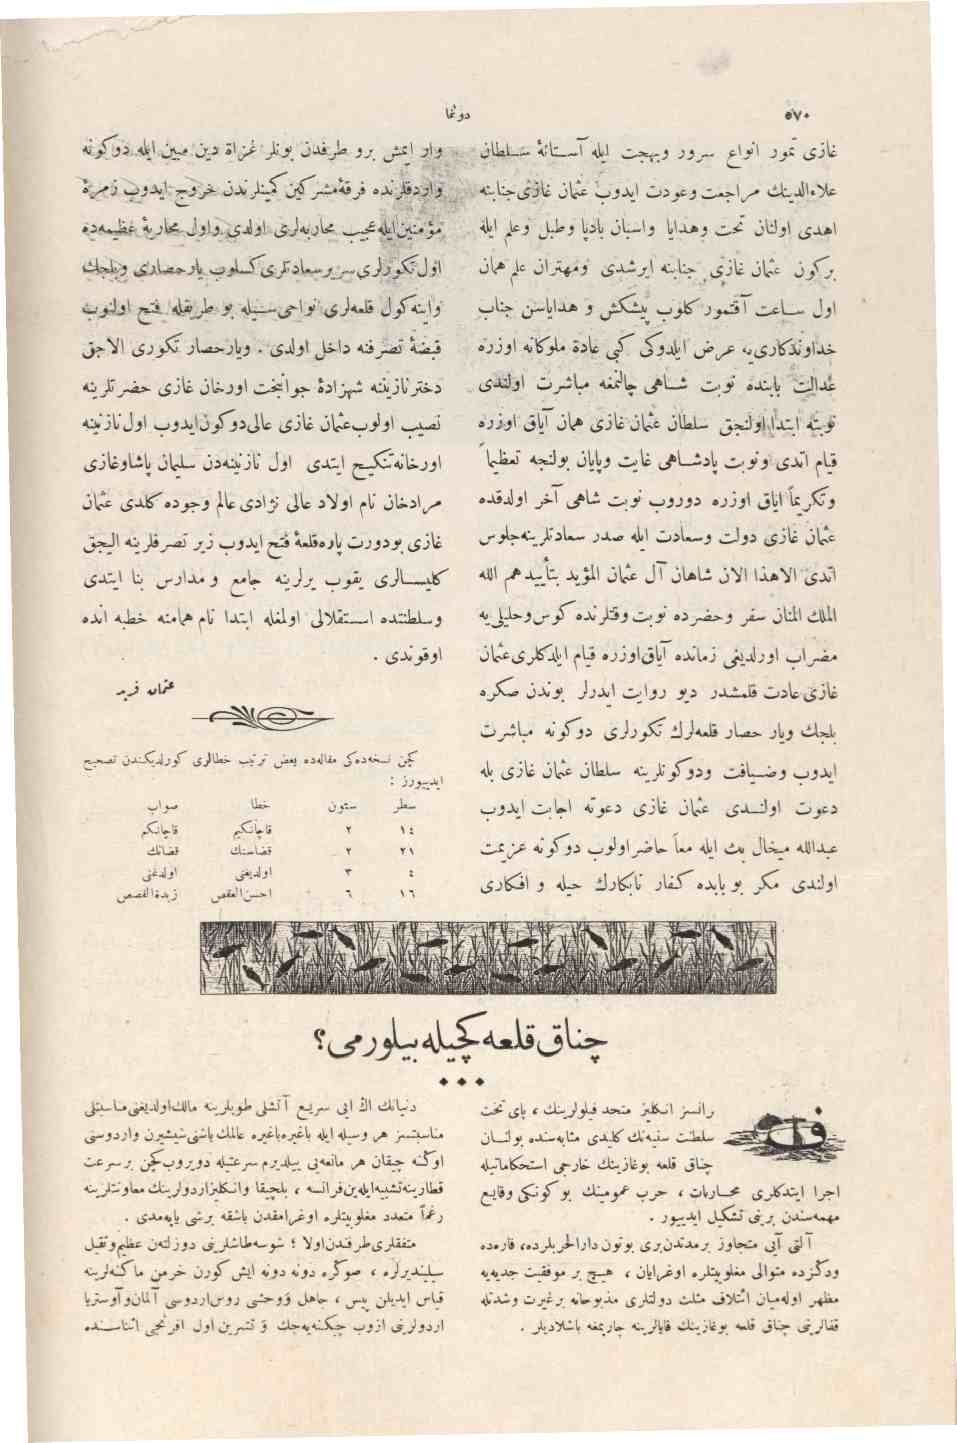 ٥٧٠
دونما
غازی تمور انواع سرور وبهجت ایله آستانهٔ سلطان
علاءالدینك مراجعت وعودت ایدوب عثمان غازی جنابنه
اهدی اولنان تحت وهدایا واسبان بادپا وطبل وعلم ایله
برکون عثمان غازی جنابنه ایرشدی ومهتران علم همان
اول ساعت آقتمور کلوب پیشکش و هدایاسن جناب
خداوندکاری‌یه عرض ایلدوکی کبی عادة ملوکانه اوزره
عدالت بابنده نوبت شاهی چالنمغه مباشرت اولندی
نوبته ابتدا اولنجق سلطان عثمان غازی همان آیاق اوزره
قیام اتدی ونوبت پادشاهی غایت وپایان بولنجه تعظیماً
وتکریماً ایاق اوزره دوروب نوبت شاهی آخر اولدقده
عثمان غازی دولت وسعادت ایله صدر سعادتلرینه جلوس
اتدی الا هذا الان شاهان آل عثمان المؤید بتأیید هم الله
الملك المنان سفر وحضرده نوبت وقتلرنده کوس وحلیلی‌یه
مضراب اورلدیغی زمانده آیاق اوزره قیام ایلدکلری عثمان
غازی عادت قلمشدر دیو روایت ایدرلر بوندن صکره
بلجك ویار حصار قلعه‌لرك تکورلری دوکونه مباشرت
ایدوب وضیافت ودوکونلرینه سلطان عثمان غازی بله
دعوت اولندی عثمان غازی دعوته اجابت ایدوب
عبدالله میخال بك ایله معاً حاضر اولوب دوکونه عزیمت
اولندی مکر بو بابده کفار نابکارك حیله و افکاری
وار ایمش برو طرفدن بونلر غزاة دین مبین ایله دوکونه
واردقلرنده فرقهٔ مشرکین کمینلرندن خروج ایدوب زمرهٔ
مؤمنین ایله عجیب محاربه‌لری اولدی واول محاربهٔ عظیمه‌ده
اول تکورلری سر بر سعادتلری کسلوب یار حصاری وبلجك
واینه کول قلعه‌لری نواحی‌سیله بو طریقله فتح اولنوب
قبضهٔ تصرفنه داخل اولدی . ویار حصار تکوری الاجق
دختر نازیننه شهزادهٔ جوانبخت اورخان غازی حضرتلرینه
نصیب اولوب عثمان غازی عالی دوکون ایدوب اول نازنینه
اورخانه تنکیح ایتدی اول نازنینه‌دن سلیمان پاشا وغازی
مراد خان نام اولاد عالی نژادی عالم وجوده کلدی عثمان
غازی بو دورت پاره قلعهٔ فتح ایدوب زیر تصرفلرینه الیجق
کلیسالری یقوب یرلرینه جامع و مدارس بنا ایتدی
وسلطنتده استقلالی اولمغله ابتدا نام همامنه خطبه انده
اوقوندی .
عثمان فرید
کچن نسخه‌ده‌کی مقاله‌ده بعض ترتیب خطالری کورلدیکندن تصحیح
ایدییورز :
سطر ستون خطا صواب
١٤ ٢ قاچانکیم قاچانکم
٢١ ٢ قضاسنك قضانك
٤ ٣ اولدیغی اولدغی
١٦ ٦ احسن القصص زبدة القصص
چناق قلعه کچیله بیلورمی؟
فرانسز انکلیز متحد فیلولرینك ، پای تخت
سلطنت سنیه‌نك کلیدی مثابه‌سنده بولنان
چناق قلعه بوغازینك خارجی استحکاماتیله
اجرا ایتدکلری محاربات ، حرب عمومینك بو کونکی وقایع
مهمه‌سندن برینی تشکیل ایدییور .
آلتی آیی متجاوز بر مدتدن‌بری بوتون دارالحربلرده، قاره‌ده
ودکزده متوالی مغلوبیتلره اوغرایان ، هیچ بر موفقیت جدیه‌یه
مظهر اوله‌میان ائتلاف مثلث دولتلری مذبوحانه بر غیرت وشدتله
قفالرینی چناق قلعه بوغازینك قایالرینه چارپمغه باشلادیلر .
دنیانك اك ایی سریع آتشلی طوبلرینه مالك اولدیغنی مناسبتلی
مناسبتسز هر وسیله ایله باغیره باغیره عالمك باشنی شیشیرن واردوسنی
اوکنه چیقان هر مانعه‌یی ییلدیرم سرعتیله دویروب کچن بر سرعت
قطارینه تشبیه ایله‌ین فرانسه ، بلچیقا وانکلیز اردولرینك معاونتلرینه
رغماً متعدد مغلوبیتلره اوغرامقدن باشقه برشی یاپه‌مدی .
متفقلری طرفندن اولا ؛ شوسه طاشلرینی دوزلتن عظیم وثقیل
سیلیندیرلره ، صوکره دونه دونه ایش کورن خرمن ماکنه‌لرینه
قیاس ایدیلن پیس ، جاهل ووحشی روس اردوسی آلمان وآوستریا
اردولرینی ازوب چیکنه‌یه‌جك و تشرین اول افرنجی اثناسنده